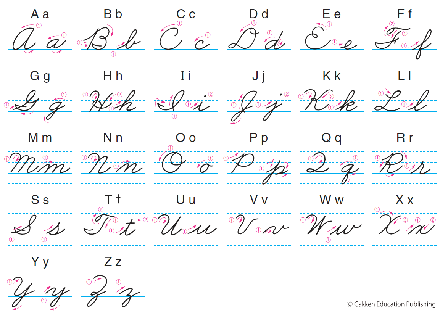 A a B b C c D d E e F f
A a B b C c D d E e F f
G g H h I i J j K k L l
G g H h I i J j K k L l
M m N n O o P p Q q R r
M m N n O o P p Q q R r
S s T t U u V v W w X x
S s T t U u V v W w X x
Y y Z z
Y y Z z
© Gakken Education Publishing